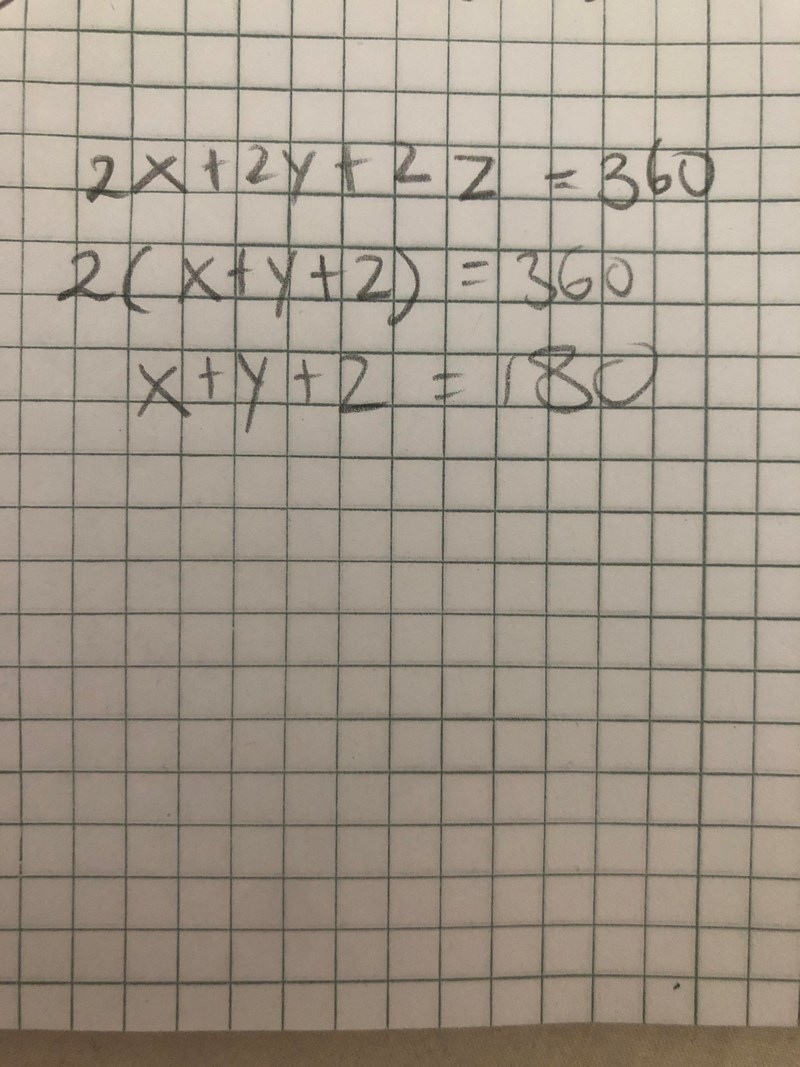 2x+2y+2z=360
2(x+y+z)=360
x+y+z=180